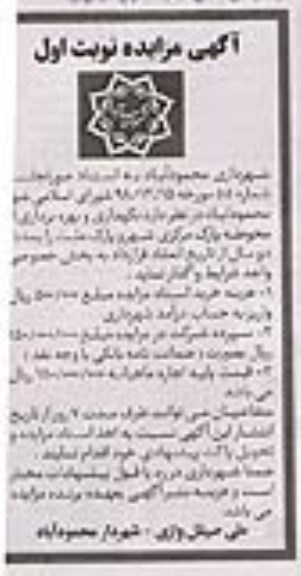 آگهی مزایده نوبت اول
شهرداری محمودآباد به استناد صورتجلسه
شماره مورخه ۹۸/۱۲/۱۵ شورای اسلامی شهر
محمودآباد در نظر دارد نگهداری و بهره برداری از
محوطه پارک مرکزی شهر و پارک ملت را به مدت
دو سال از تاریخ انعقاد قرارداد به بخش خصوصی
واجد شرایط واگذار نماید.
۱- هزینه خرید اسناد مزایده مبلغ ۵۰۰/۰۰۰ ریال
واریز به حساب درآمد شهرداری
۲- سپرده شرکت در مزایده مبلغ
ریال بصورت (ضمانت نامه بانکی یا وجه نقد)
۳- قیمت پایه اجاره ماهیانه ریال
متقاضیان می توانند ظرف مدت ۷ روز از تاریخ
انتشار این آگهی نسبت به اخذ اسناد مزایده و
تحویل پاکت پیشنهادی خود اقدام نمایند.
ضمنا شهرداری در رد یا قبول پیشنهادات مختار
است و هزینه نشر آگهی بعهده برنده مزایده
می باشد.
علی - شهردار محمودآباد